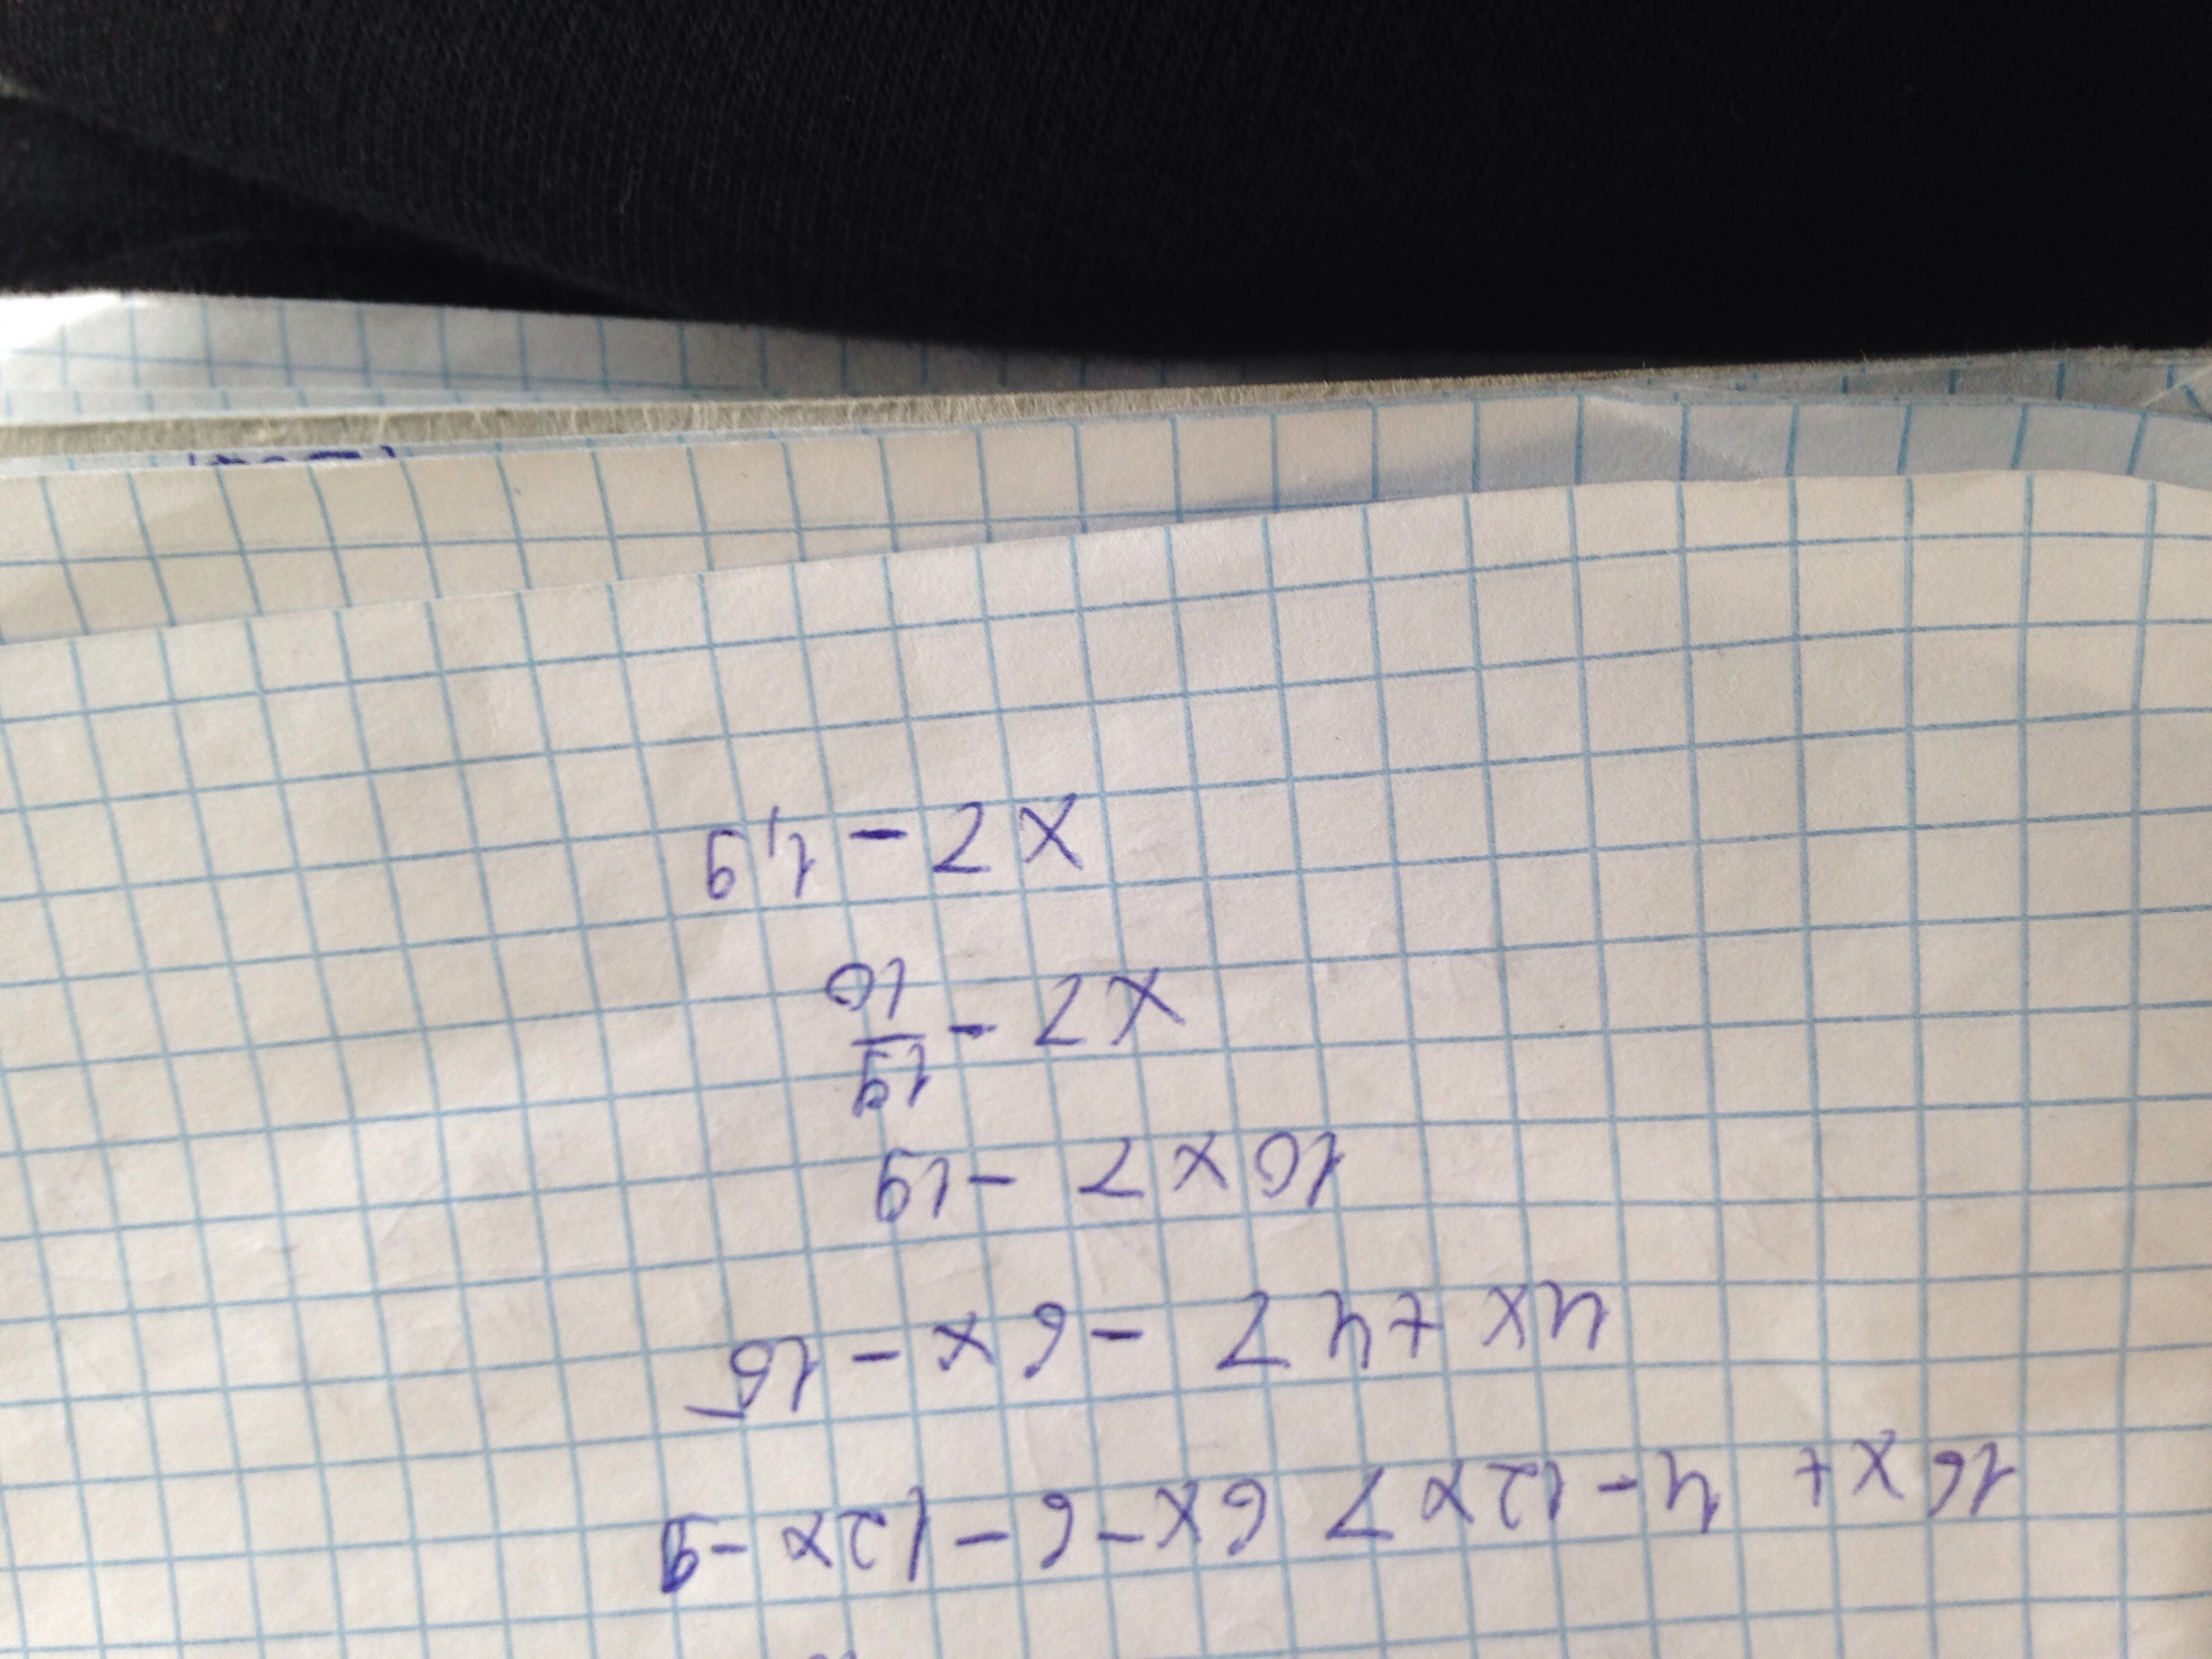 16x + 4 - 12x > 6x - 6 - 12x - 9
4x + 4 > -6x - 15
10x > -19
x > -19/10
x > -1,9